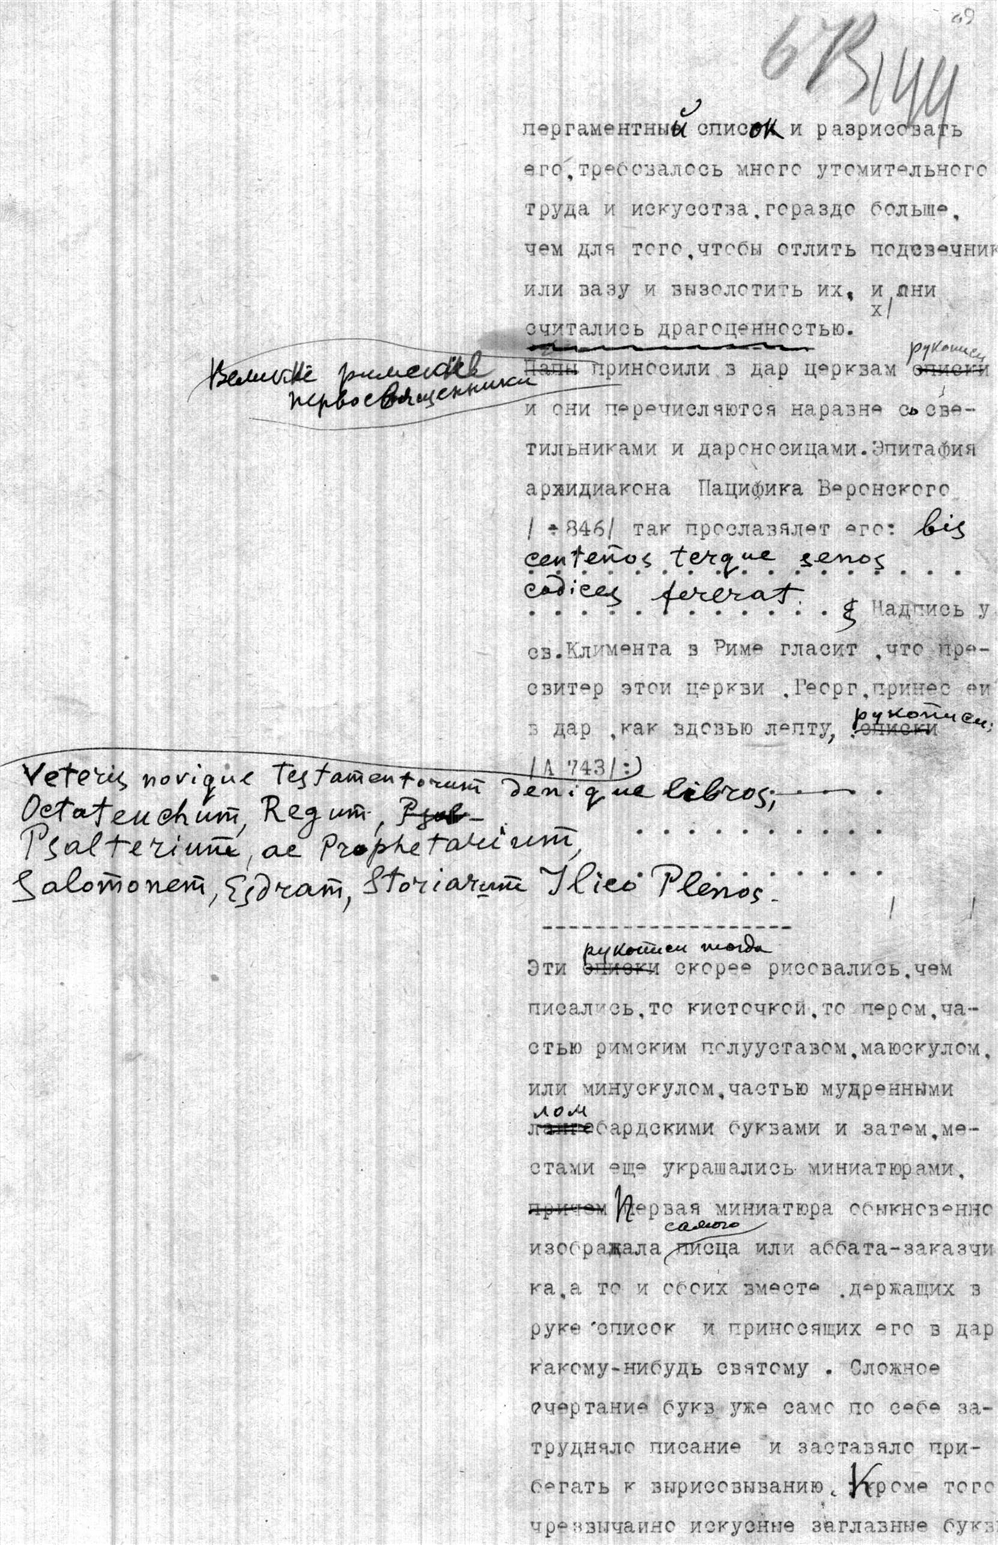 69
673/144
пергаментный список и разрисовать
его, требовалось много утомительного
труда и искусства, гораздо больше,
чем для того, чтобы отлить подсвечник
или вазу и вызолотить их, и они
х/
считались драгоценностью.
рукописи
Папы приносили в дар церквам списки
Великие римские
первосвященники
и они перечисляются наравне со све-
тильниками и дароносицами. Эпитафия
архидиакона Пацифика Веронского
/ + 846/ так прославялет его: bis
centenos terque senos
codices fererat.
Надпись у
св. Климента в Риме гласит, что пре-
свитер этой церкви, Георг, принес ей
рукописи,
в дар, как вдовью лепту, списки
/А 743/:
Veteris novique Testamentorum denique libros;
Octateuchum, Regum, Psal-
Psalterium, ac Prophetarium,
Salomonem, Esdram, Storiarum Ilico Plenos.
рукописи тогда
Эти списки скорее рисовались, чем
писались, то кисточкой, то пером, ча-
стью римским полууставом, маюскулом,
или минускулом, частью мудренными
лом
лангобардскими буквами и затем, ме-
стами еще украшались миниатюрами,
причем Первая миниатюра обыкновенно
самого
изображала писца или аббата-заказчи
ка, а то и обоих вместе, держащих в
руке список и приносящих его в дар
какому-нибудь святому. Сложное
очертание букв уже само по себе за-
трудняло писание и заставяло при-
бегать к вырисовыванию. Кроме того
чрезвычайно искусные заглавные букв